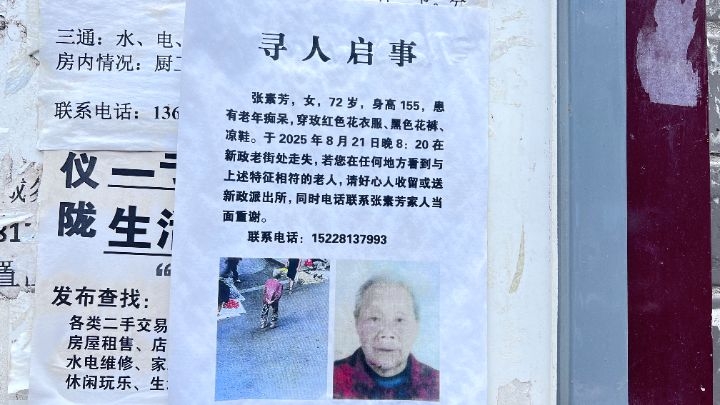 三通：水、电、
房内情况：厨
联系电话：136
仪
陇 生
“
发布查找：
各类二手交易
房屋租售、店
水电维修、家
休闲玩乐、生
寻人启事
张素芳，女，72岁，身高155，患
有老年痴呆，穿玫红色花衣服、黑色花裤、
凉鞋。于2025年8月21日晚8：20在
新政老街处走失，若您在任何地方看到与
上述特征相符的老人，请好心人收留或送
新政派出所，同时电话联系张素芳家人当
面重谢。
联系电话：15228137993